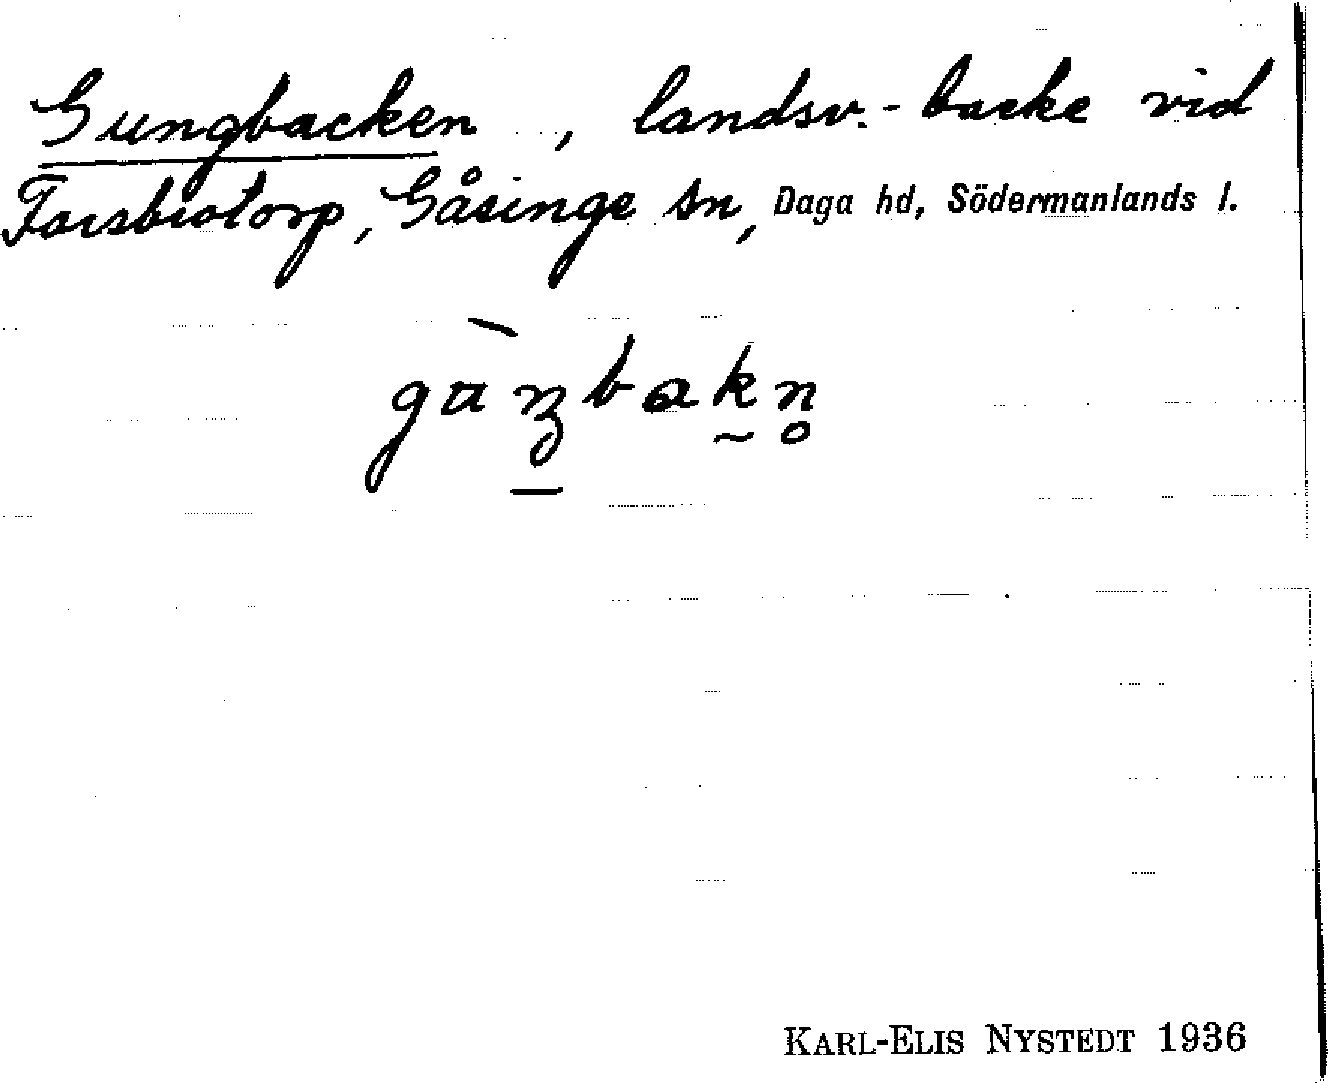 Gungbacken, landsv.-backe vid
Forsbrotorp, Gåsinge sn, Daga hd, Södermanlands l.
gàŋbakn̥
KARL-ELIS NYSTEDT 1936